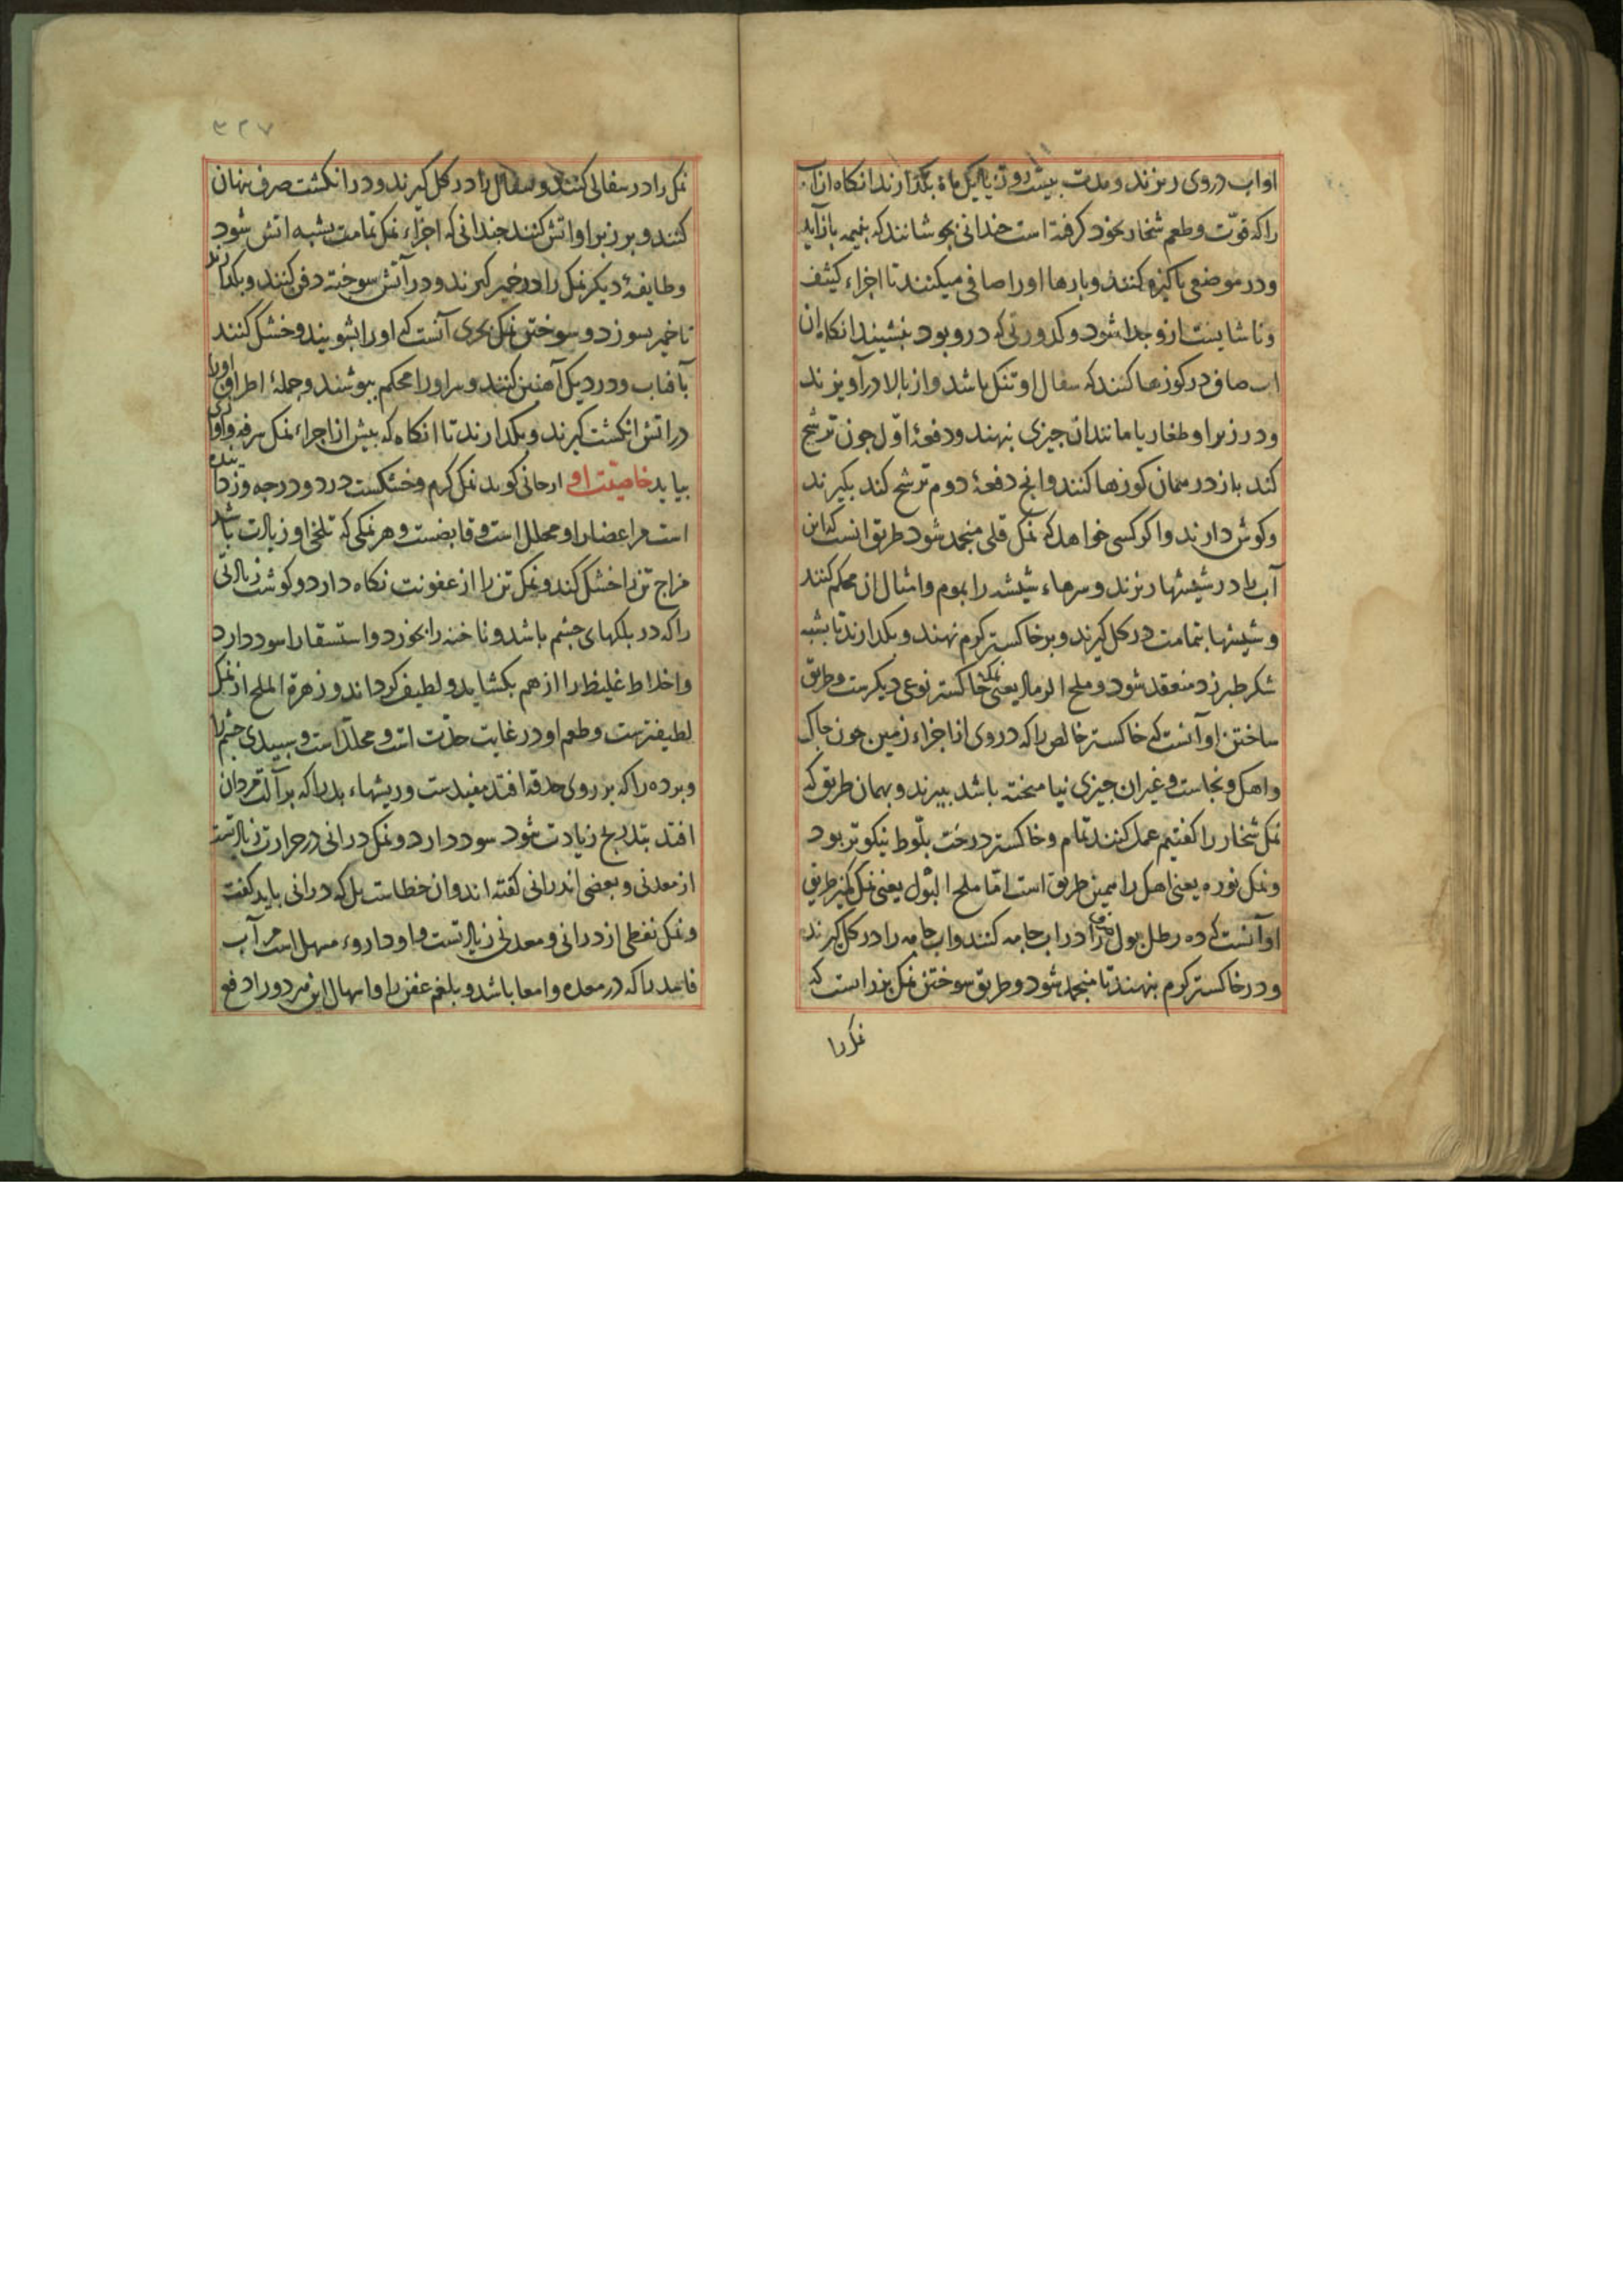 او اب در وی ریزند و مدت بیست روز یا یک ماه بگذارند انکاه ان اب
را که قوّت و طعم شخار بخود کرفته است جندانی بجوشانند که بنیمه باز آید
و در موضعی باکیزه کنند و بارها او را صافی میکنند تا اجزاء کثیف
و ناشایست ازو جدا شود و کدورتی که درو بود بنشیند انکاه ان
اب صافی در کوزها کنند که سفال او تنک باشد و از بالا در آویزند
و در زیر او طغار یا مانند ان جیزی بنهند و دفعهٔ اول جون ترشح
کند باز در همان کوزها کنند و انج دفعهٔ دوم ترشح کند بکیرند
و کوش دارند و اکر کسی خواهد که نمک قلی منجمد شود طریق انست که این
آب را در شیشها ریزند و سرهاء شیشه را بموم و امثال ان محکم کنند
و شیشها بتمامت در کل کیرند و بر خاکستر کرم نهند و بکذارند تا بشبه
شکر طبرزد منعقد شود و ملح الرماد یعنی نمک خاکستر نوعی دیکرست و طریق
ساختن او آنست که خاکستر خالص را که در وی از اجزاء زمین جون خاک
و اهک و نجاست و غیر ان جیزی نیامیخته باشد ببرند و بهمان طریق که
نمک شخار را کفتیم عمل کنند تمام و خاکستر درخت بلّوط نیکوتر بود
و نمک نوره یعنی اهک را همین طریق است امّا ملح البول یعنی نمک کمیز طریق
او آنست که ده رطل بول را در اب جامه کنند و اب جامه را در کل کیرند
و در خاکستر کرم بنهند تا منجمد شود و طریق سوختن نمک بزر است که
نمک را
۳۲۷
نمک را در سفالی کنند و سفال را در کل کیرند و در انکشت صرف بنهان
کنند و بر زبر او اتش کنند جندانی که اجزاء نمک تمامت بشبه اتش شود
و طایفهٔ دیکر نمک را در خمیر کیرند و در آتش سوخته دفن کنند و بکذارند
تا خمیر بسوزد و سوختن نمک بحری آنست که او را بشویند و خشک کنند
بآفتاب و در دیک آهنین کنند و سر او را محکم ببوشند و جملهٔ اطراف او را
در اتش انکشت کیرند و بکدارند تا انکاه که بیش از اجزاء نمک
بیاید خاصیت او ارجانی کوید نمک کرم و خشکست در دو درجه و زداینده
است مر اعضا را و محلل است و قابضست و هر نمکی که تلخی او زیادت باشد
مزاج تن را خشک کند و نمک تن را از عفونت نکاه دارد و کوشت زیادتی
را که در بلکهای جشم باشد و ناخنه را بخورد و استسقا را سود دارد
و اخلاط غلیظ را از هم بکشاید و لطیف کرداند و زهرة الملح از نمک
لطیفترست و طعم او در غایت حدّت است و محلّل است و سبیدی جشم را
و برده را که بر روی حدقه افتد مفیدست و ریشهاء بد را که بر آلت مردان
افتد بتدریج زیادت شود سود دارد و نمک درانی در حرارت زیادتست
از معدنی و بعضی اندرانی کفته اند و ان خطاست بل که درانی باید کفت
و نمک نفطی از درانی و معدنی زیادتست و او داروء مسهل است مر آب
فاسد را که در معده و امعا باشد و بلغم عفن را و اسهال این هر دو را دفع